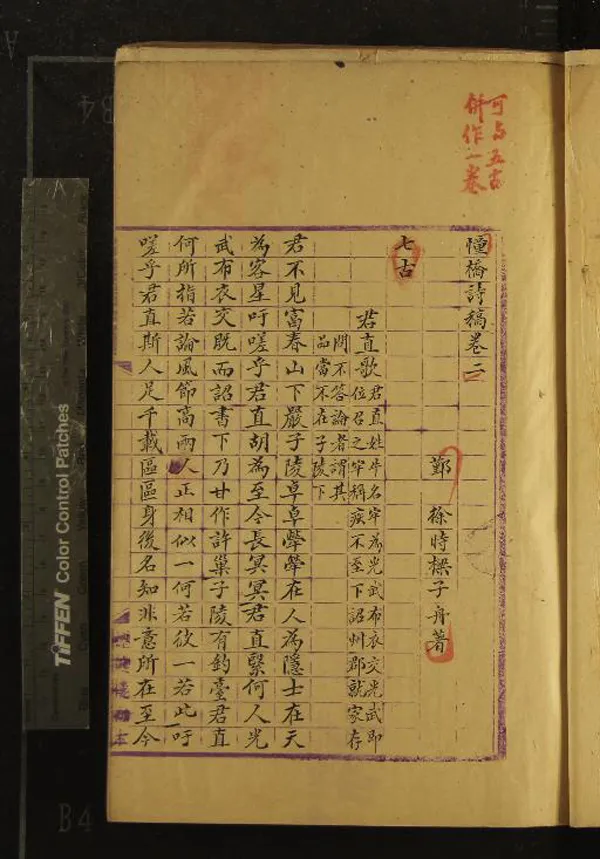 可与五古
併作一卷
憧橋詩稿卷二
鄞 徐時樑子舟著
七古
君直歌
君直姓牛名牢為光武布衣交光武即
位召之牢稱疾不至下詔州郡就家存
問不答論者謂其
品當不在子陵下
君不見富春山下嚴子陵卓卓犖犖在人為隱士在天
為客星吁嗟乎君直胡為至今長冥冥君直繄何人光
武布衣交既而詔書下乃甘作許巢子陵有釣臺君直
何所指若論風節高兩人正相似一何若彼一若此吁
嗟乎君直斯人足千載區區身後名知非意所在至今
TIFFEN Color Control Patches
B4